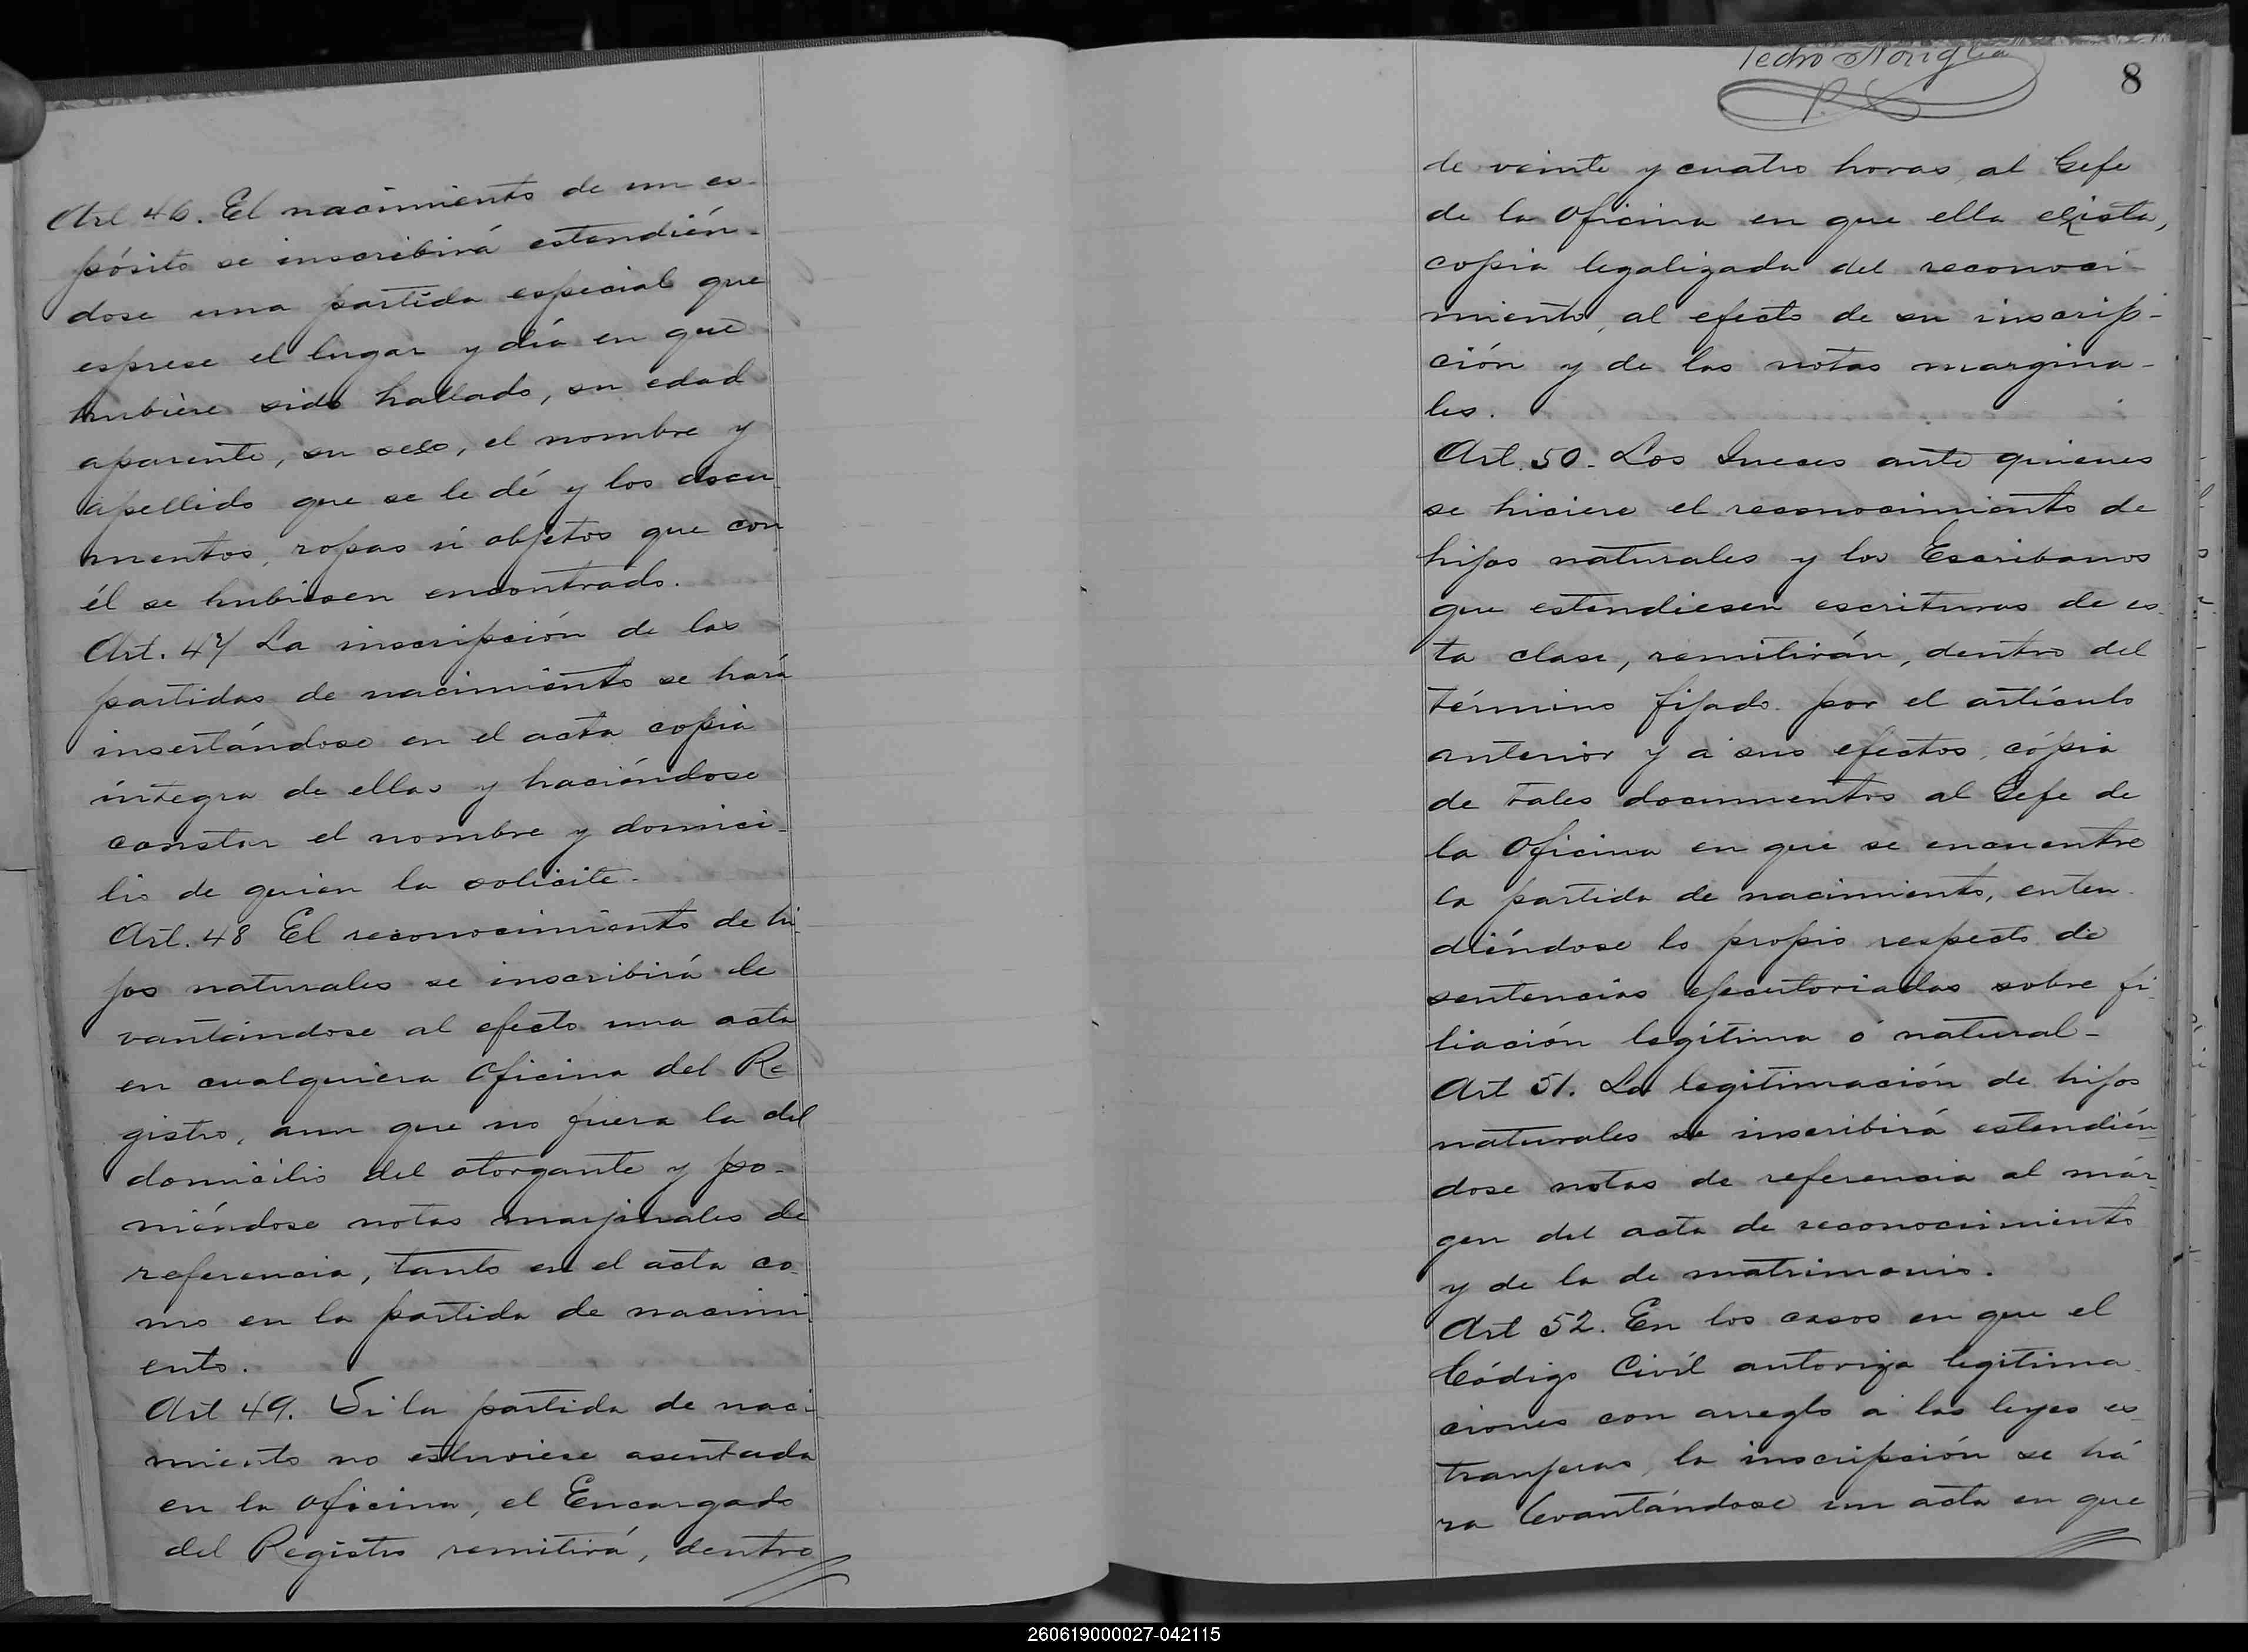 Art 46. El nacimiento de un es-
pósito se inscribirá estendién-
dose una partida especial que
esprese el lugar y día en que
hubiere sido hallado, su edad
aparente, su secso, el nombre y
apellido que se le dé y los docu
mentos, ropas ú objetos que con
él se hubiesen encontrado.
Art. 47 La inscripción de las
partidas de nacimiento se hará
insertándose en el acta copia
íntegra de ellas y haciéndose
constar el nombre y domici-
lio de quien la solicite.
Art. 48 El reconocimiento de hi-
jos naturales se inscribirá le
vantándose al efecto una acta
en cualquiera Oficina del Re
gistro, aun que no fuera la del
domicilio del otorgante y po-
niéndose notas marjinales de
referencia, tanto en el acta co-
mo en la partida de nacimi
ento.
Art 49. Si la partida de naci-
miento no estuviese asentada
en la Oficina, el Encargado
del Registro remitirá, dentro
Pedro
8
de veinte y cuatro horas, al Gefe
de la Oficina en que ella exista,
copia legalizada del reconoci-
miento, al efecto de su inscrip-
ción y de las notas margina-
les.
Art. 50. Los Jueces ante quienes
se hiciere el reconocimiento de
hijos naturales y los Escribanos
que estendiesen escrituras de es-
ta clase, remitirán, dentro del
término fijado por el artículo
anterior y á sus efectos, cópia
de tales documentos al Gefe de
la Oficina en que se encuentre
la partida de nacimiento, enten-
diéndose lo propio respecto de
sentencias ejecutoriadas sobre fi-
liación legítima ó natural-
Art 51. La legitimación de hijos
naturales se inscribirá estendién-
dose notas de referencia al már-
gen del acta de reconocimiento
y de la de matrimonio.
Art 52. En los casos en que el
Código Civil autoriza legitima
ciones con arreglo á las leyes es-
tranjeras, la inscripción se há
ra levantándose un acta en que
260619000027-042115